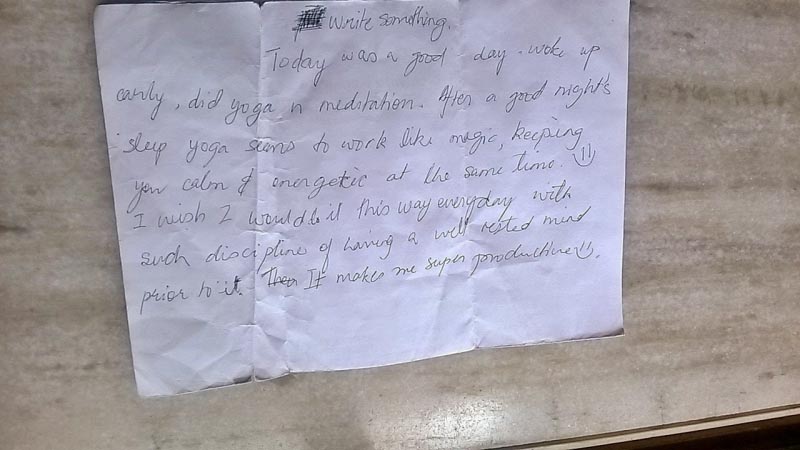 Write something.
Today was a good day. woke up
early, did yoga n meditation. After a good night's
sleep yoga seems to work like magic, keeping
you calm & energetic at the same time.
I wish I would do it this way everyday with
such discipline of having a well rested mind
prior to it. Then It makes me super productive.